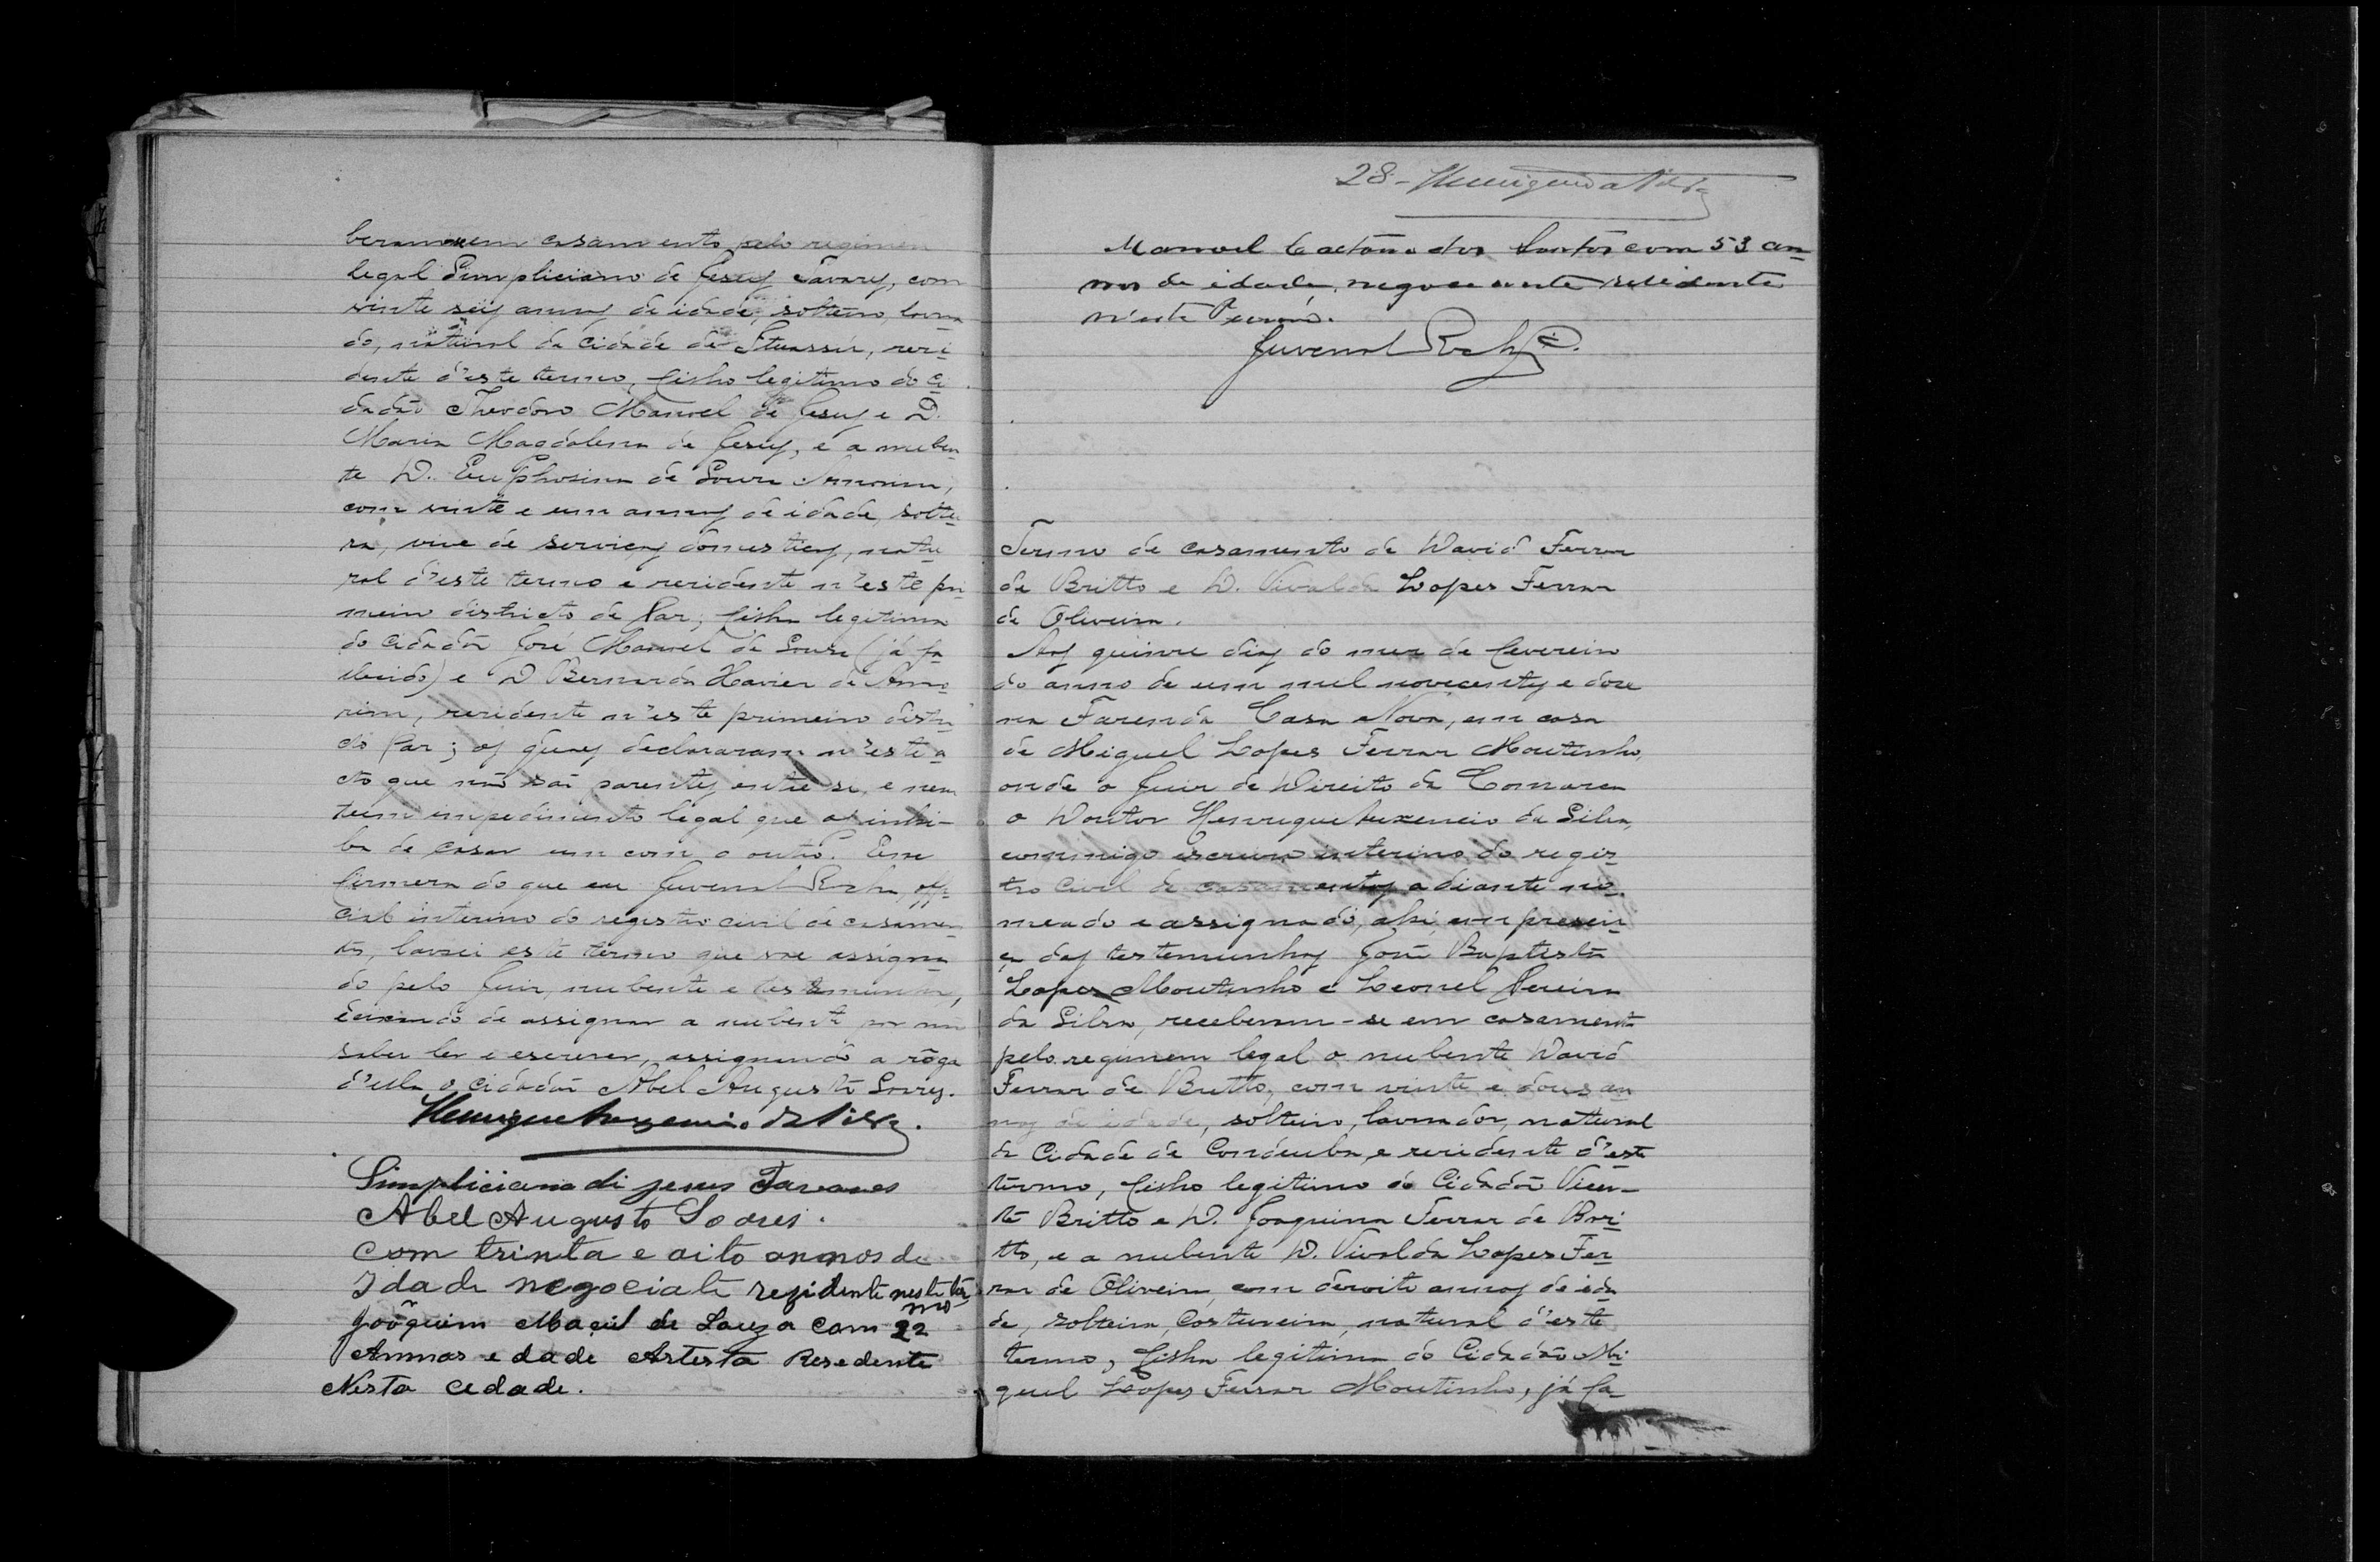 beram-se em casamento pelo regimen
legal Simpliciano de Jesus Tavares, com
vinte seis annos de idade, solteiro lavra
do, natural da cidade de Ituassú, resi-
dente d'este termo, filho legitimo do ci-
dadão Theodoro Manoel de Jesus e D.
Maria Magdalena de Jesus, e a nuben-
te D. Euphosina de Souza Amorim,
com vinte e um annos de idade, soltei-
ra, vive de serviços domesticos, natu-
ral d'este termo e residente n'este pri-
meiro districto de Paz; filha legitima
do cidadão José Manoel de Souza (já fa-
llecido) e D Bernarda Xavier de Amo-
rim, residente n'este primeiro distri
do Paz; os quaes declararam n'este a-
cto que não são parentes entre si, e nem
teem impedimento legal que os inhi-
ba de casar um com o outro. Em
firmeza do que eu Juvenal Rocha, offi-
cial interino do registro civil de casamen-
tos, lavrei este termo que vae assigna-
do pelo Juiz, nubente e testemunhas,
deixando de assignar a nubente por não
saber ler e escrever, assignando a rôgo
d'ella o cidadão Abel Augusto Soares.
Henrique Auxencio da Silva.
Simpliciano di jesus Tavares
Abel Augusto Soares.
Com trinta e oito annos de
Idade negociate rezidente neste têr-
mo
Joôquim Maciel de Souza com 22
Annos e dade Artesta Resedente
Nesta cedade.
28- Henrique A da Silva
Manoel Caetano dos Santos com 53 an-
nos de idade, negoceante residente
n'este Termo.
Juvenal Rocha
Termo de casamento de David Ferraz
de Britto e D. Vivalda Lopes Ferraz
de Oliveira.
Aos quinze dias do mez de Fevereiro
do anno de um mil novecentos e doze
na Fazenda Casa Nova, em casa
de Miguel Lopes Ferraz Moutinho,
onde o Juiz de Direito da Comarca
o Doutor Henrique Auxencio da Silva,
commigo escrivão interino do regis-
tro civil de casamentos adiante no-
meado e assignado, ahi, em presen-
ça das testemunhas João Baptista
Lopes Moutinho e Leonel Pereira
da Silva, receberam-se em casamento
pelo regimem legal o nubente David
Ferraz de Britto, com vinte e dous an
nos de idade, solteiro, lavrador, natural
da Cidade de Condeuba, e residente d'este
termo, filho legitimo do Cidadão Vicen-
te Britto e D. Joaquina Ferraz de Bri-
tto, e a nubente D. Vivalda Lopes Fer-
raz de Oliveira, com dezoito annos de ida
de, solteira, costureira, natural d'este
termo, filha legitima do Cidadão Mi-
guel Lopes Ferraz Moutinho, já fa-